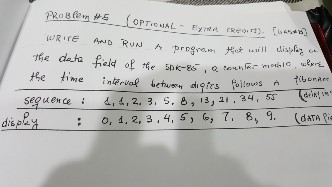 PROBLEM #5 (OPTIONAL - EXTRA CREDIT).
WRITE AND RUN A program that will display on
the data field of the SDK-85, a counter modulo, where
the time interval between digits follows A fibonacc
sequence : 1, 1, 2, 3, 5, 8, 13, 21, 34, 55
display : 0, 1, 2, 3, 4, 5, 6, 7, 8, 9. (DATA Fie